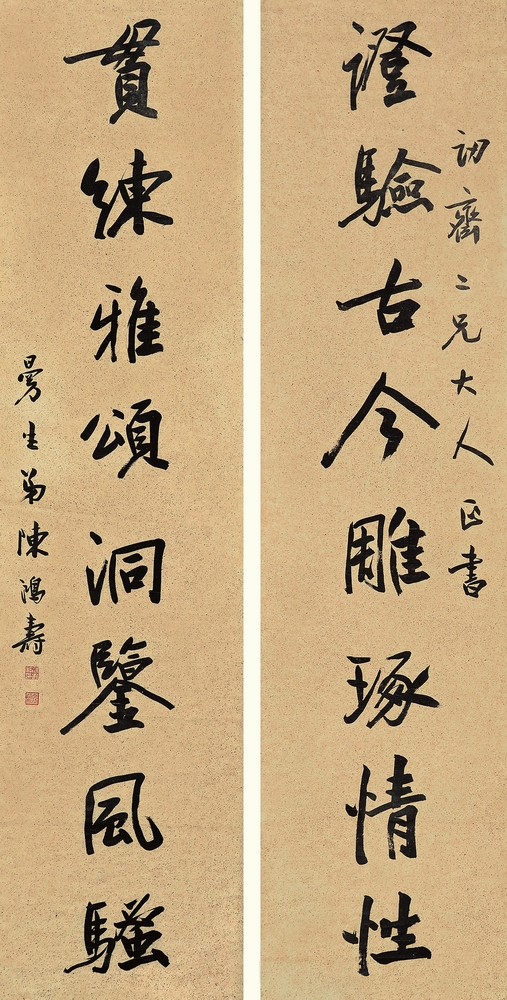 訒齋二兄大人正書
證驗古今雕琢情性
貫練雅頌洞鑒風騷
曼生弟陳鴻壽